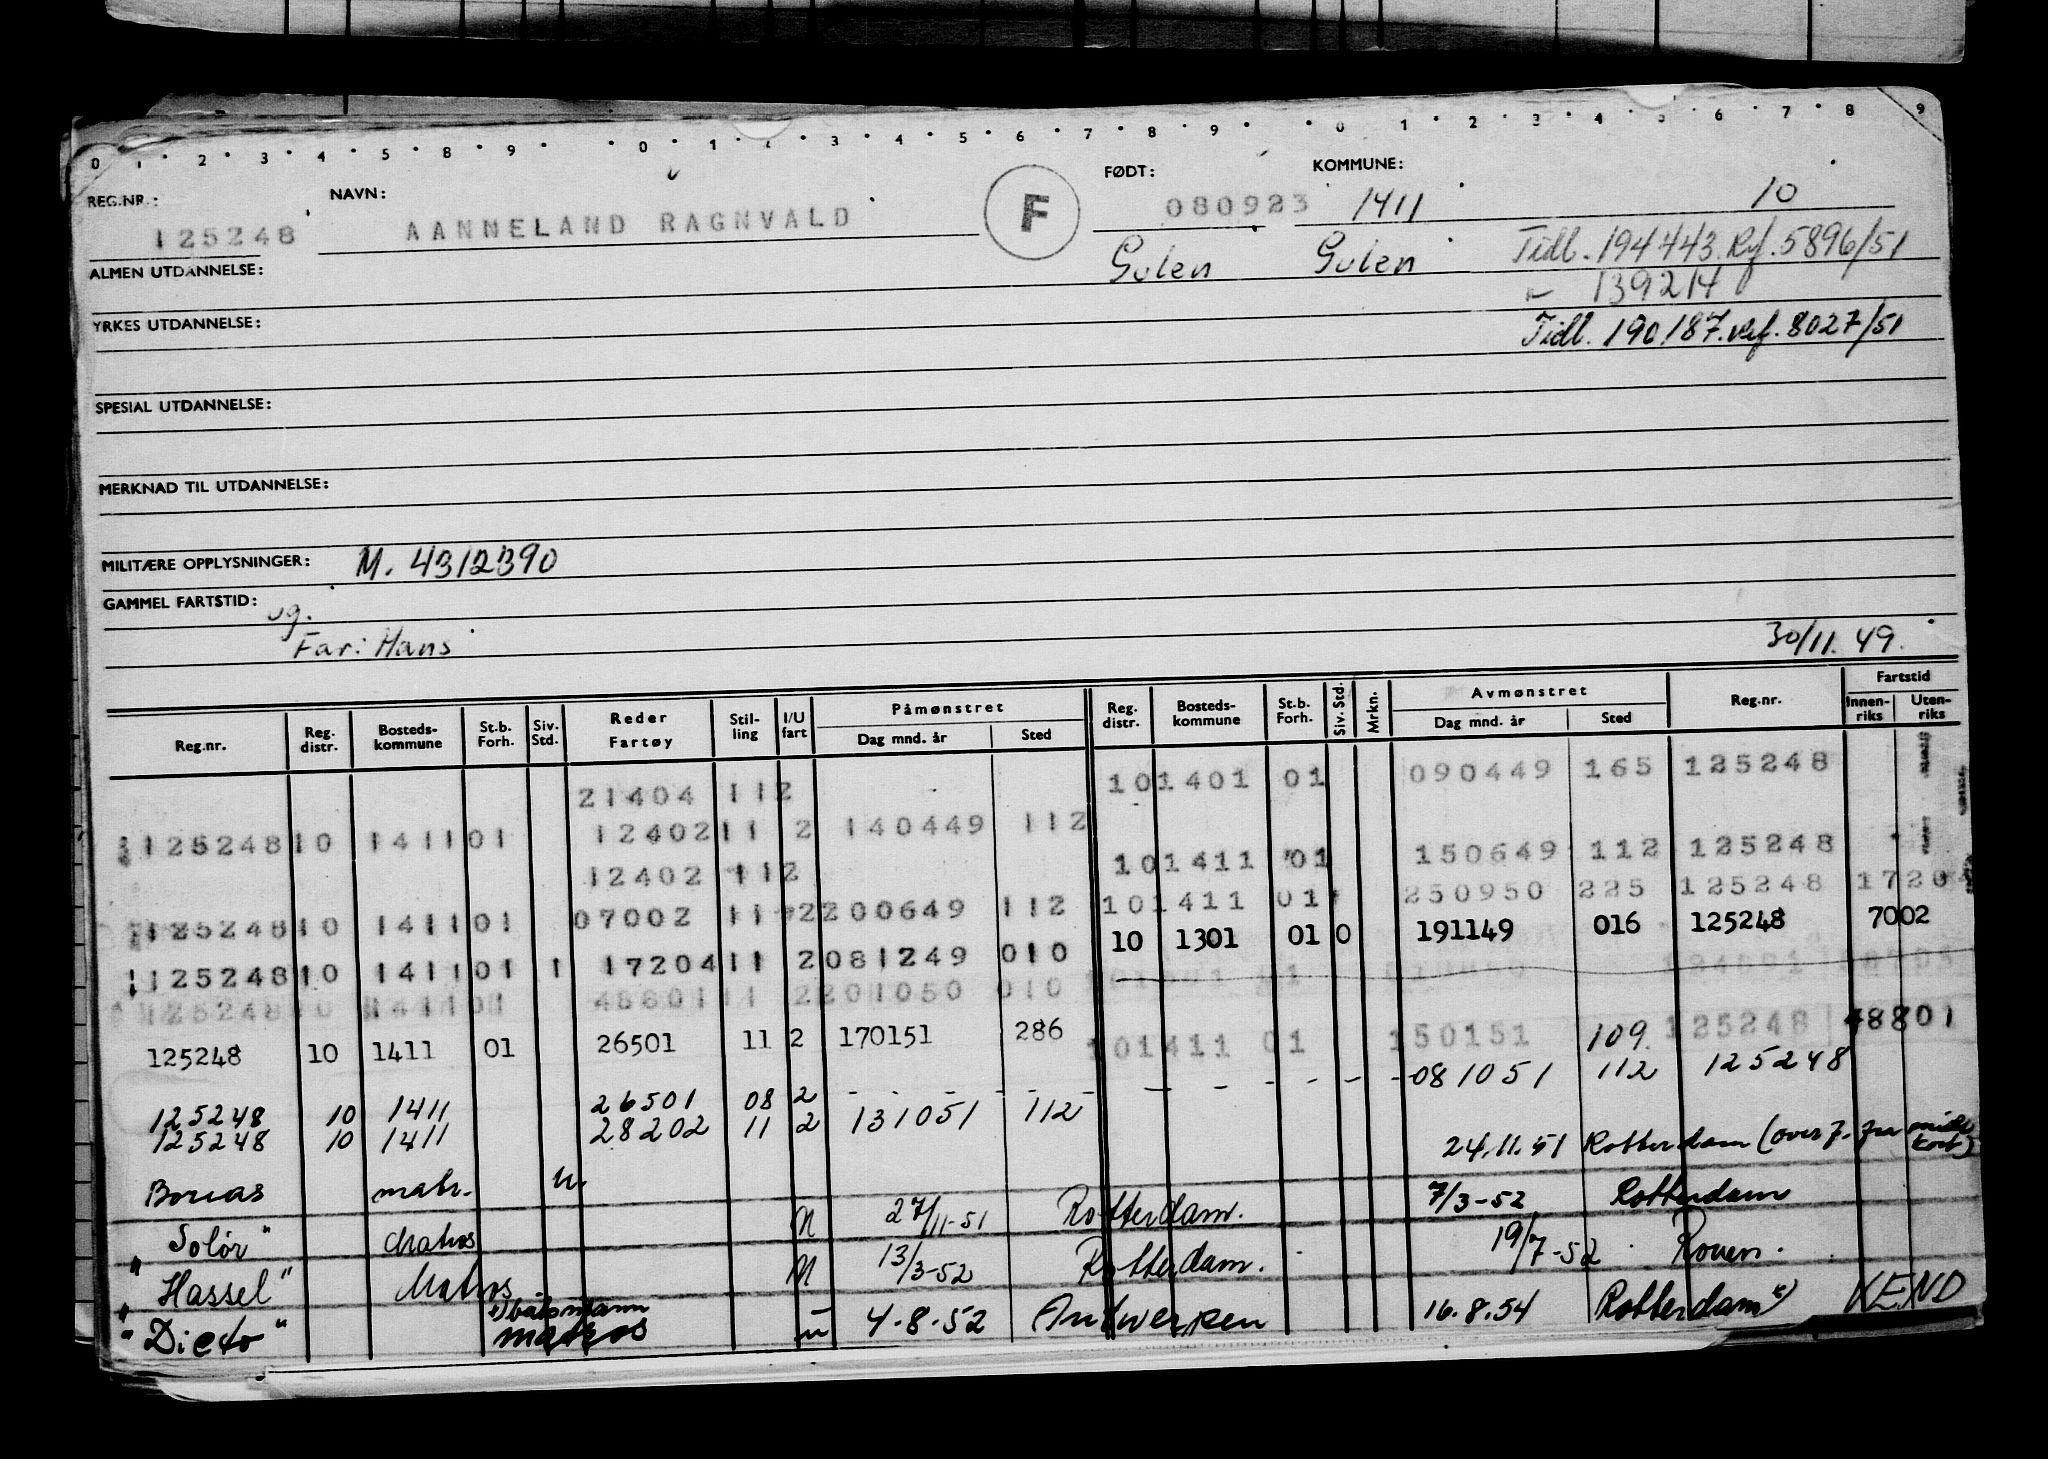 0 1 2 3 4 5 8 9 0 1 2 3 4 5 6 7 8 9 0 1 2 3 4 5 6 7 8 9
REG.NR.: NAVN: F FØDT: KOMMUNE:
125248 AANNELAND RAGNVALD 080923 1411 10
ALMEN UTDANNELSE: Gulen Gulen Tidl. 194443. Ref. 5896/51
139214
YRKES UTDANNELSE: Tidl. 190187. Ref. 8027/51
SPESIAL UTDANNELSE:
MERKNAD TIL UTDANNELSE:
MILITÆRE OPPLYSNINGER: M. 4312390
GAMMEL FARTSTID:
ug.
Far: Hans 30/11. 49.
Reg.nr. Reg. distr. Bosteds-kommune St.b. Forh. Siv. Std. Reder Fartøy Stil-ling I/U fart Påmønstret Dag mnd. år Sted Reg. distr. Bosteds-kommune St.b. Forh. Siv. Std. Mrkn. Avmønstret Dag mnd. år Sted Reg.nr. Fartstid Innen-riks Uten-riks
21404 11 2 10 1401 01 090449 165 125248
125248 10 1411 01 12402 11 2 140449 112
12402 11 2 10 1411 01 150649 112 125248
125248 10 1411 01 07002 11 2 200649 112 10 1411 01 250950 225 125248 1720
10 1301 01 0 191149 016 125248 7002
125248 10 1411 01 1 17204 11 2 081249 010
125248 10 1411 01 48801 11 2 201050 010
125248 10 1411 01 26501 11 2 170151 286 10 1411 01 150151 109. 125248 48801
125248 10 1411 26501 08 2 - - - - - 081051 112 125248
125248 10 1411 28202 11 2 131051 112
Borias matr. u. 24.11.51 Rotterdam (overf. fra midl kort)
"Solør" Matros U 27/11-51 Rotterdam. 7/3-52 Rotterdam
"Hassel" Matros U 13/3-52 Rotterdam. 19/7-52 Rouen.
x) båtsmann
"Dicto" matros u 4.8.52 Antwerpen 16.8.54 Rotterdam x) VEND